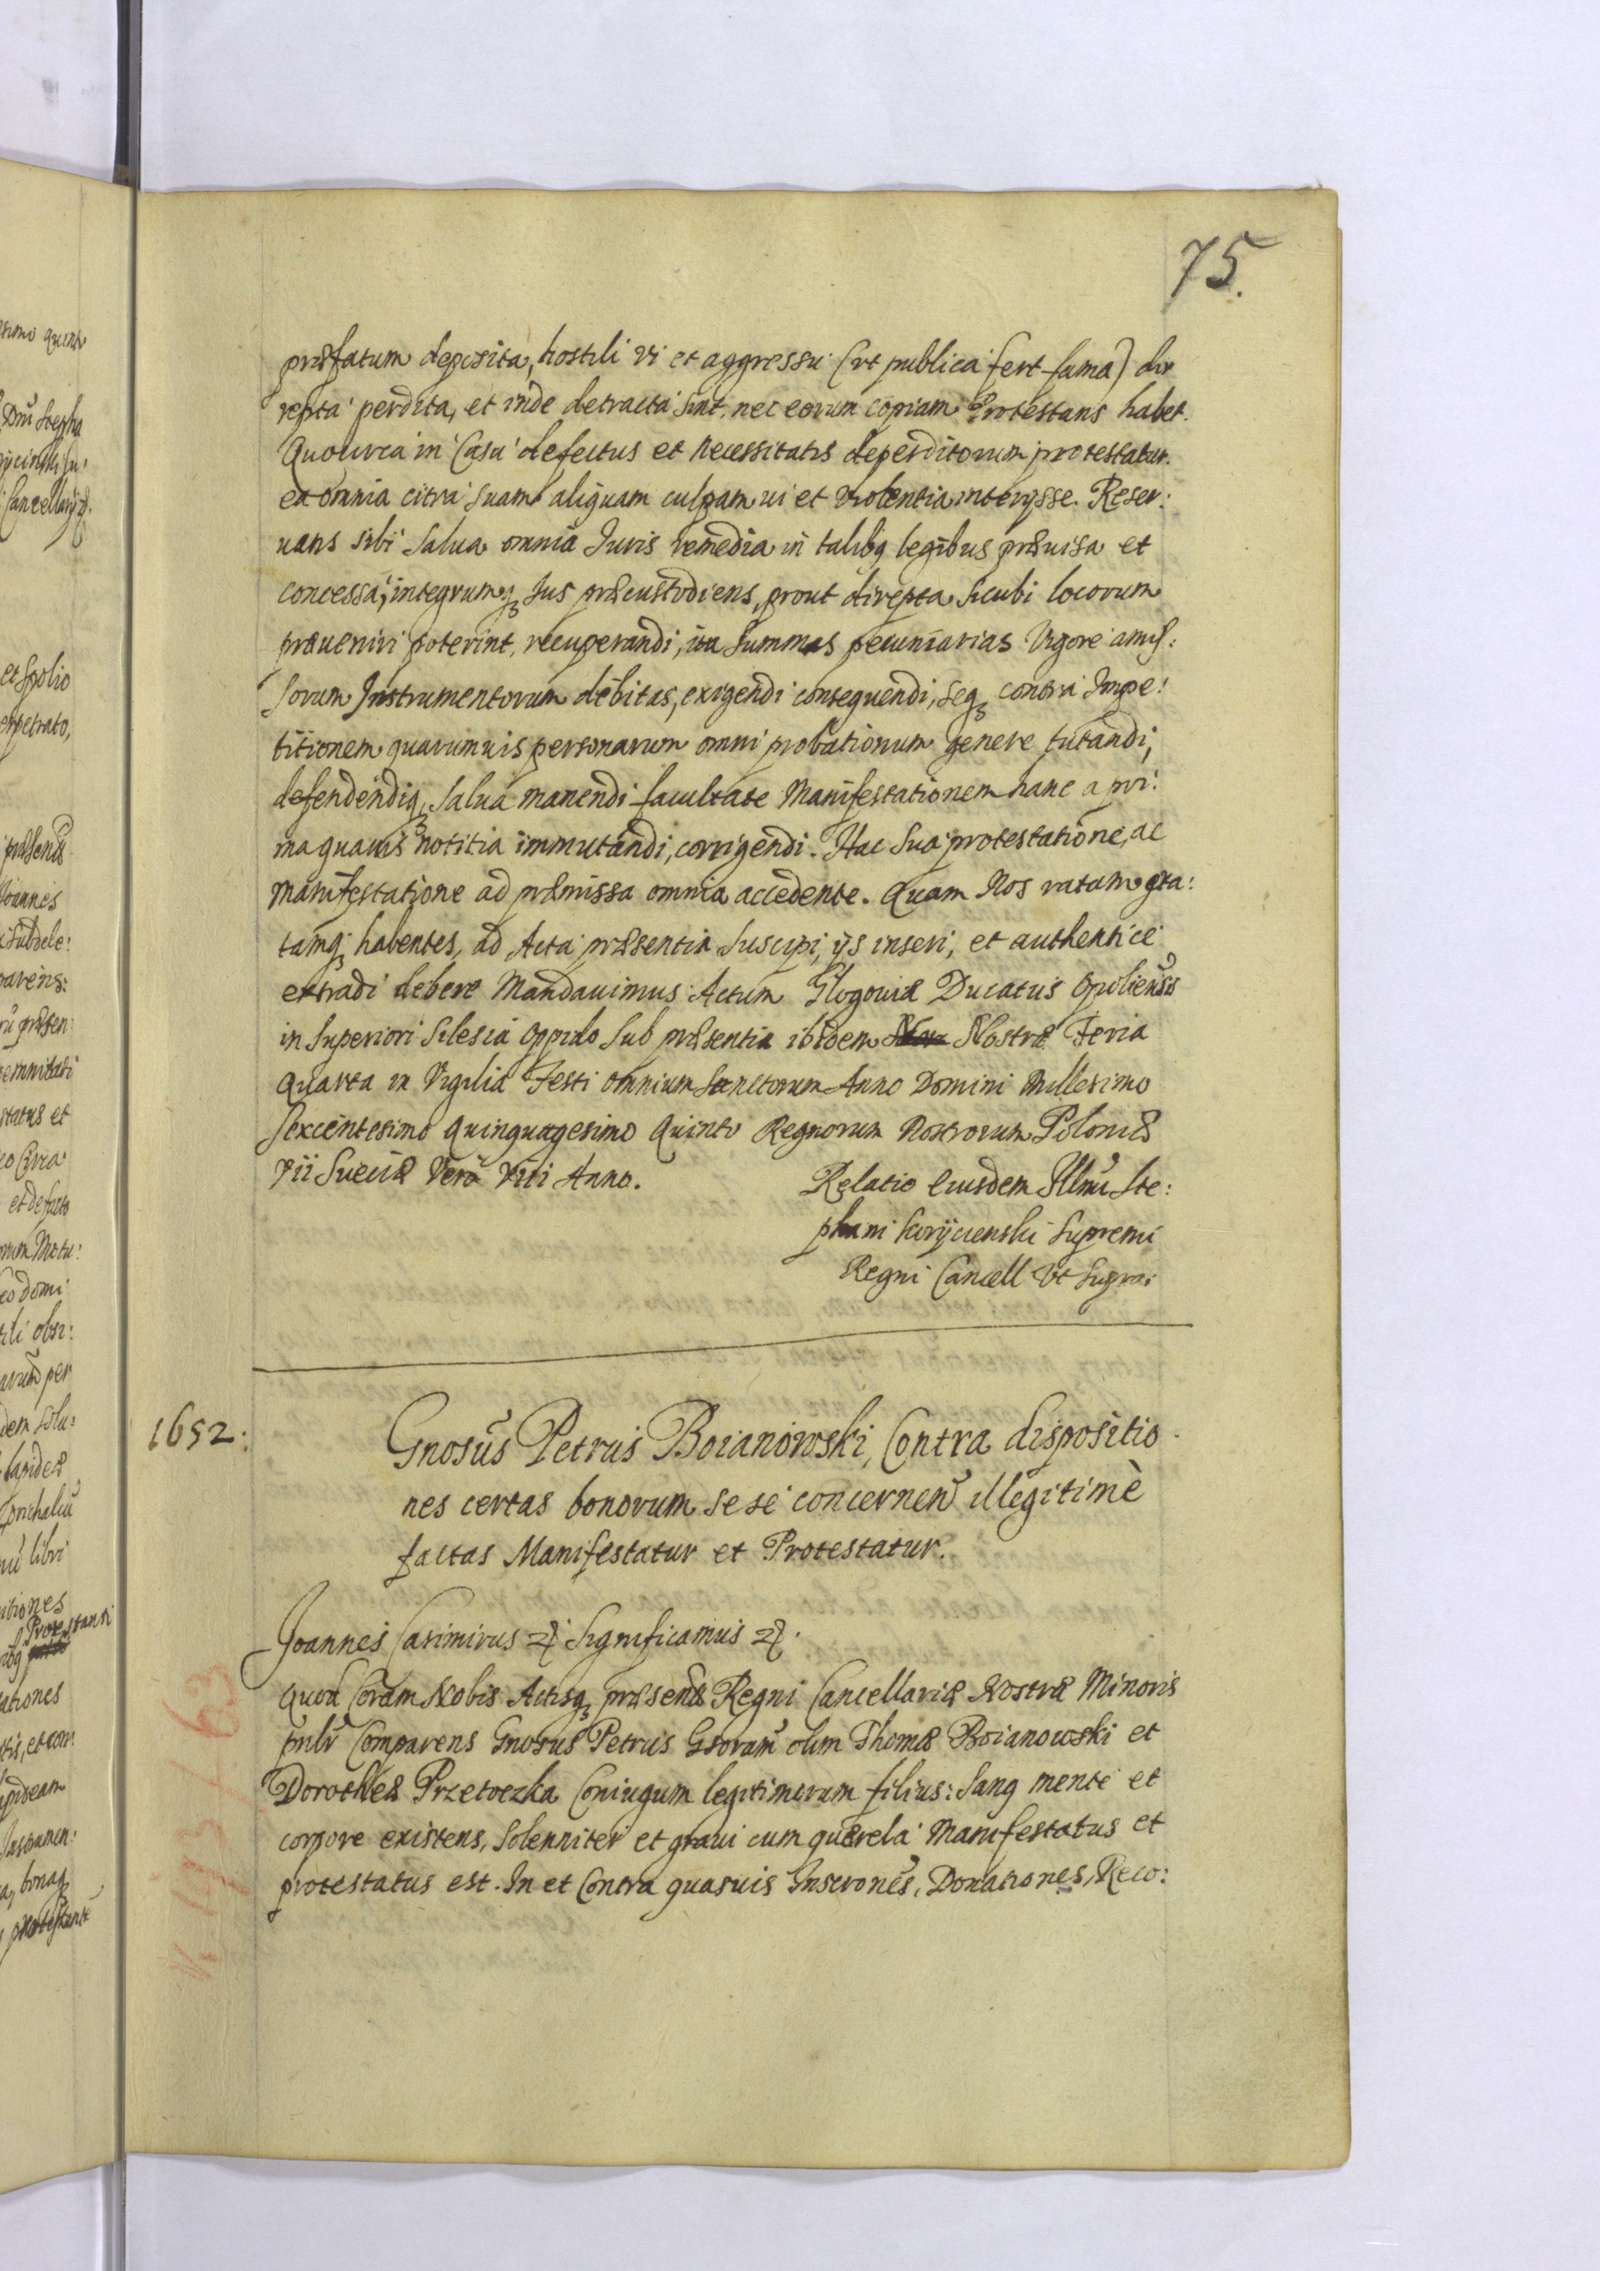 75.
præfatum deposita, hostili vi et aggressu (vt publica fert fama) dir
repta perdita, et inde detracta sint, nec eorum copiam Protestans habet.
Quocirca in Casu defectus et necessitatis deperditorum protestatur.
ea omnia citra suam aliquam culpam vi et violentia interijsse. Reser:
uans sibi salua omnia Juris remedia in talibq legibus præuisa et
concessa, integrumqꝫ Jus præcustodiens, prout direpta sicubi locorum
præueniri poterint, recuperandi, ita summas pecuniarias Vigore amis:
sorum Instrumentorum debitas, exigendi consequendi, seqꝫ contra Impe:
titionem quarumuis personarum omni probationum genere tutandi,
defendendiqꝫ, salua manendi facultate Manifestationem hanc a pri:
ma quauis notitia immutandi, corrigendi. Hac sua protestatione, ac
manifestatione ad præmissa omnia accedente. Quam Nos ratam gra:
tamqꝫ habentes, ad Acta præsentia suscipi, ijs inseri, et authentice
extradi debere Mandauimus. Actum Glogouiæ Ducatus Opoliensis
in Superiori Silesia oppido sub præsentia ibidem Nostra Feria
Quarta in Vigilia Festi omnium Sanctorum Anno Domini Millesimo
Sexcentesimo Quinquagesimo Quinto Regnorum Nostrorum Poloniæ
VII Sueciæ Verò VIII Anno.
Relatio Eiusdem Illmi Ste:
phani Korijcienski Supremi
Regni Cancell Vt supra.
1652:
Gnosus Petrus Boianowski, Contra dispositio
nes certas bonorum sese concernen illegitimè
factas Manifestatur et Protestatur.
Joannes Casimirus ꝛc Significamus ꝛc.
Quod Coram Nobis Actisqꝫ præsens Regni Cancellariæ Nostræ Minoris
pnlr Comparens Gnosus Petrus Gsorum olim Thomæ Boianowski et
Dorotheæ Przetoczka Coniugum legitimorum filius: Sanq mente et
corpore existens, solenniter et graui cum quærela Manifestatus et
protestatus est. In et Contra quasuis Inscrones, Donationes, Reco: